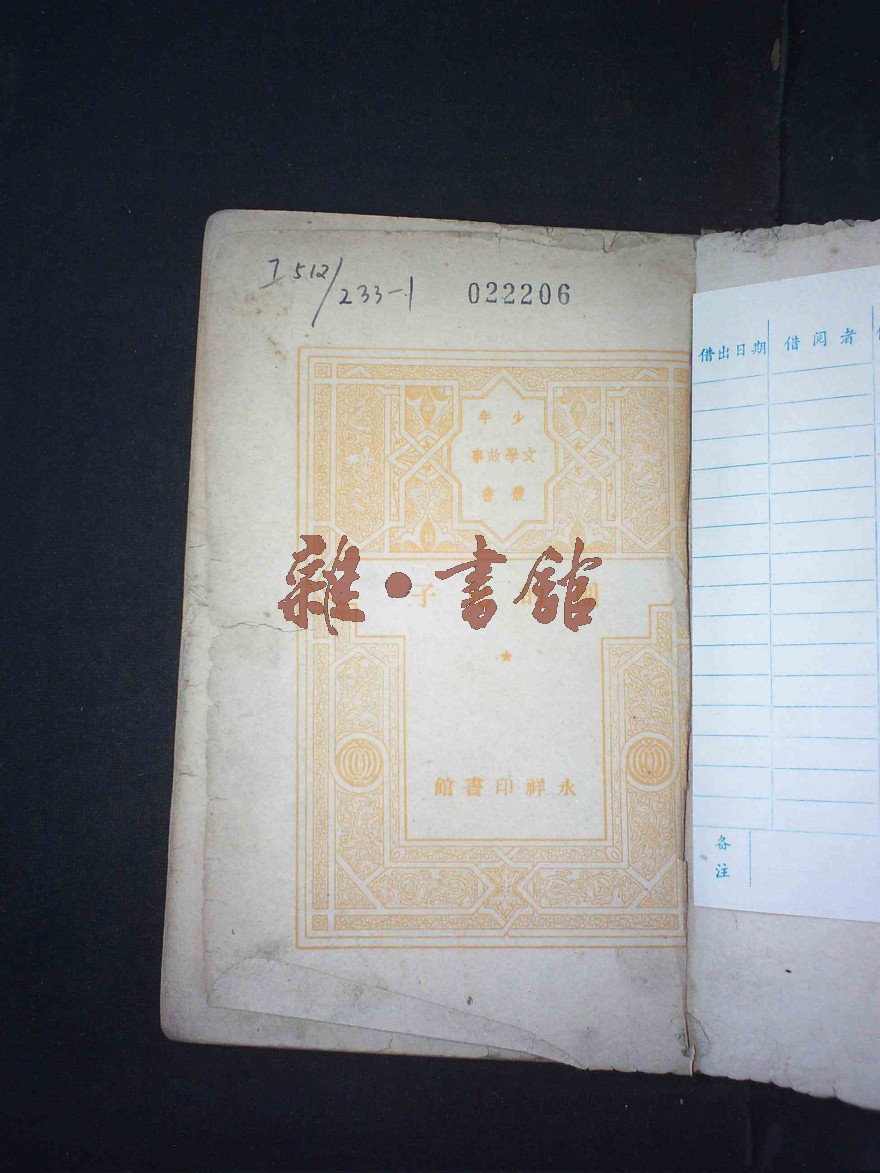 I512/233-1
022206
少年
文學故事
叢書
子
雜·書館
★
永祥印書館
借出日期
借阅者
备
注